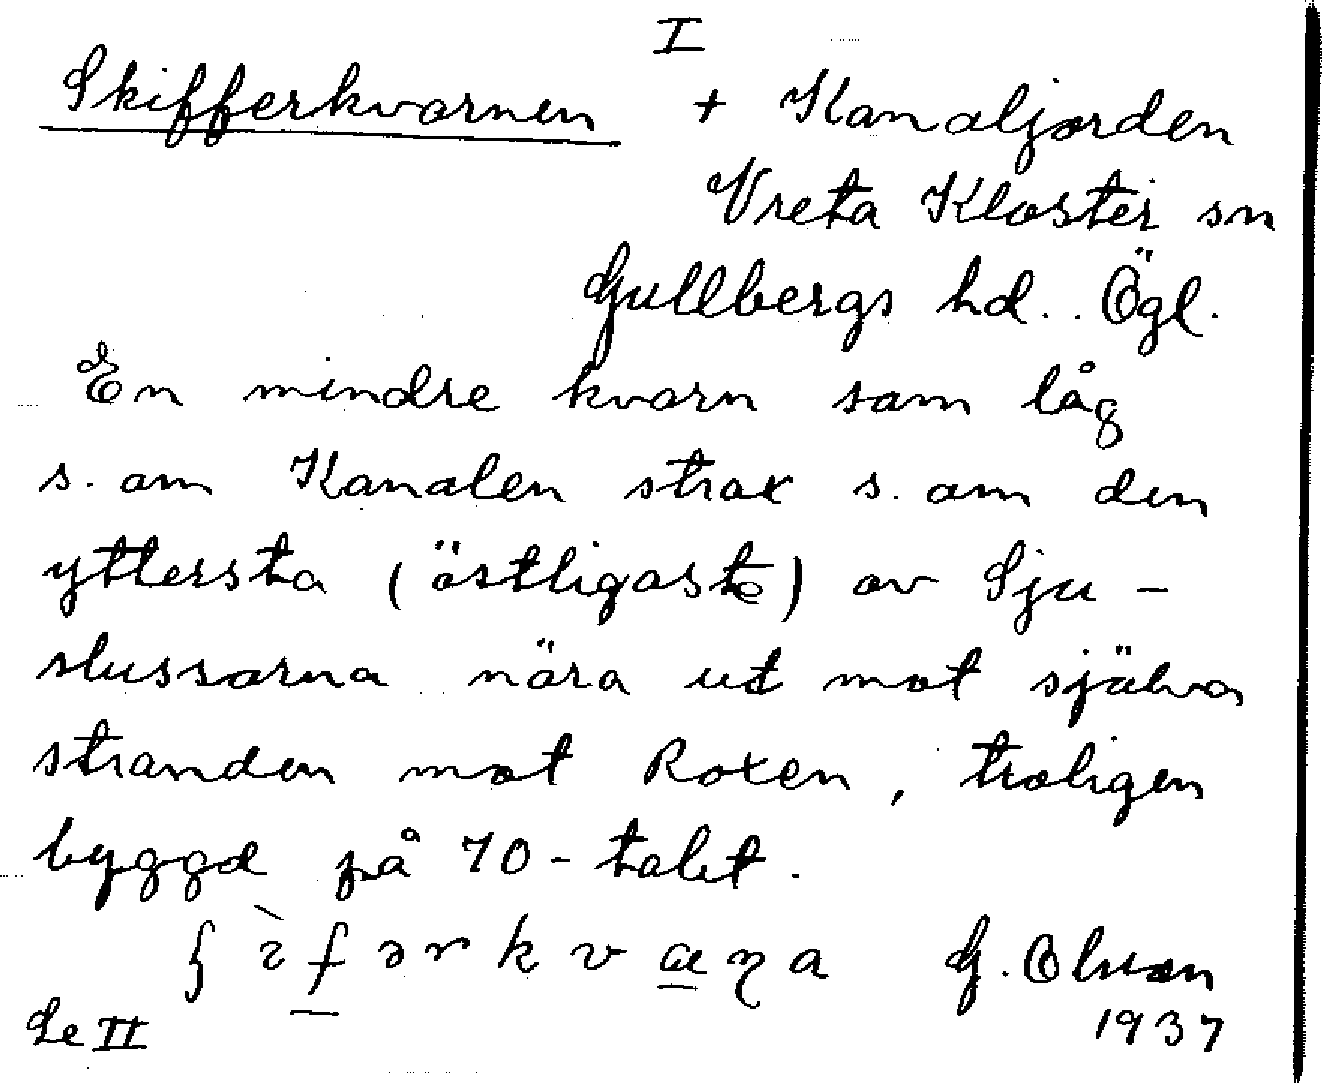 I
Skifferkvarnen + Kanaljorden
Vreta Kloster sn
Gullbergs hd. Ögl.
En mindre kvarn som låg
s. om Kanalen strax s. om den
yttersta (östligaste) av Sju-
slussarna nära ut mot själva
stranden mot Roxen, troligen
byggd på 70-talet.
G. Olsson
Se II 1937